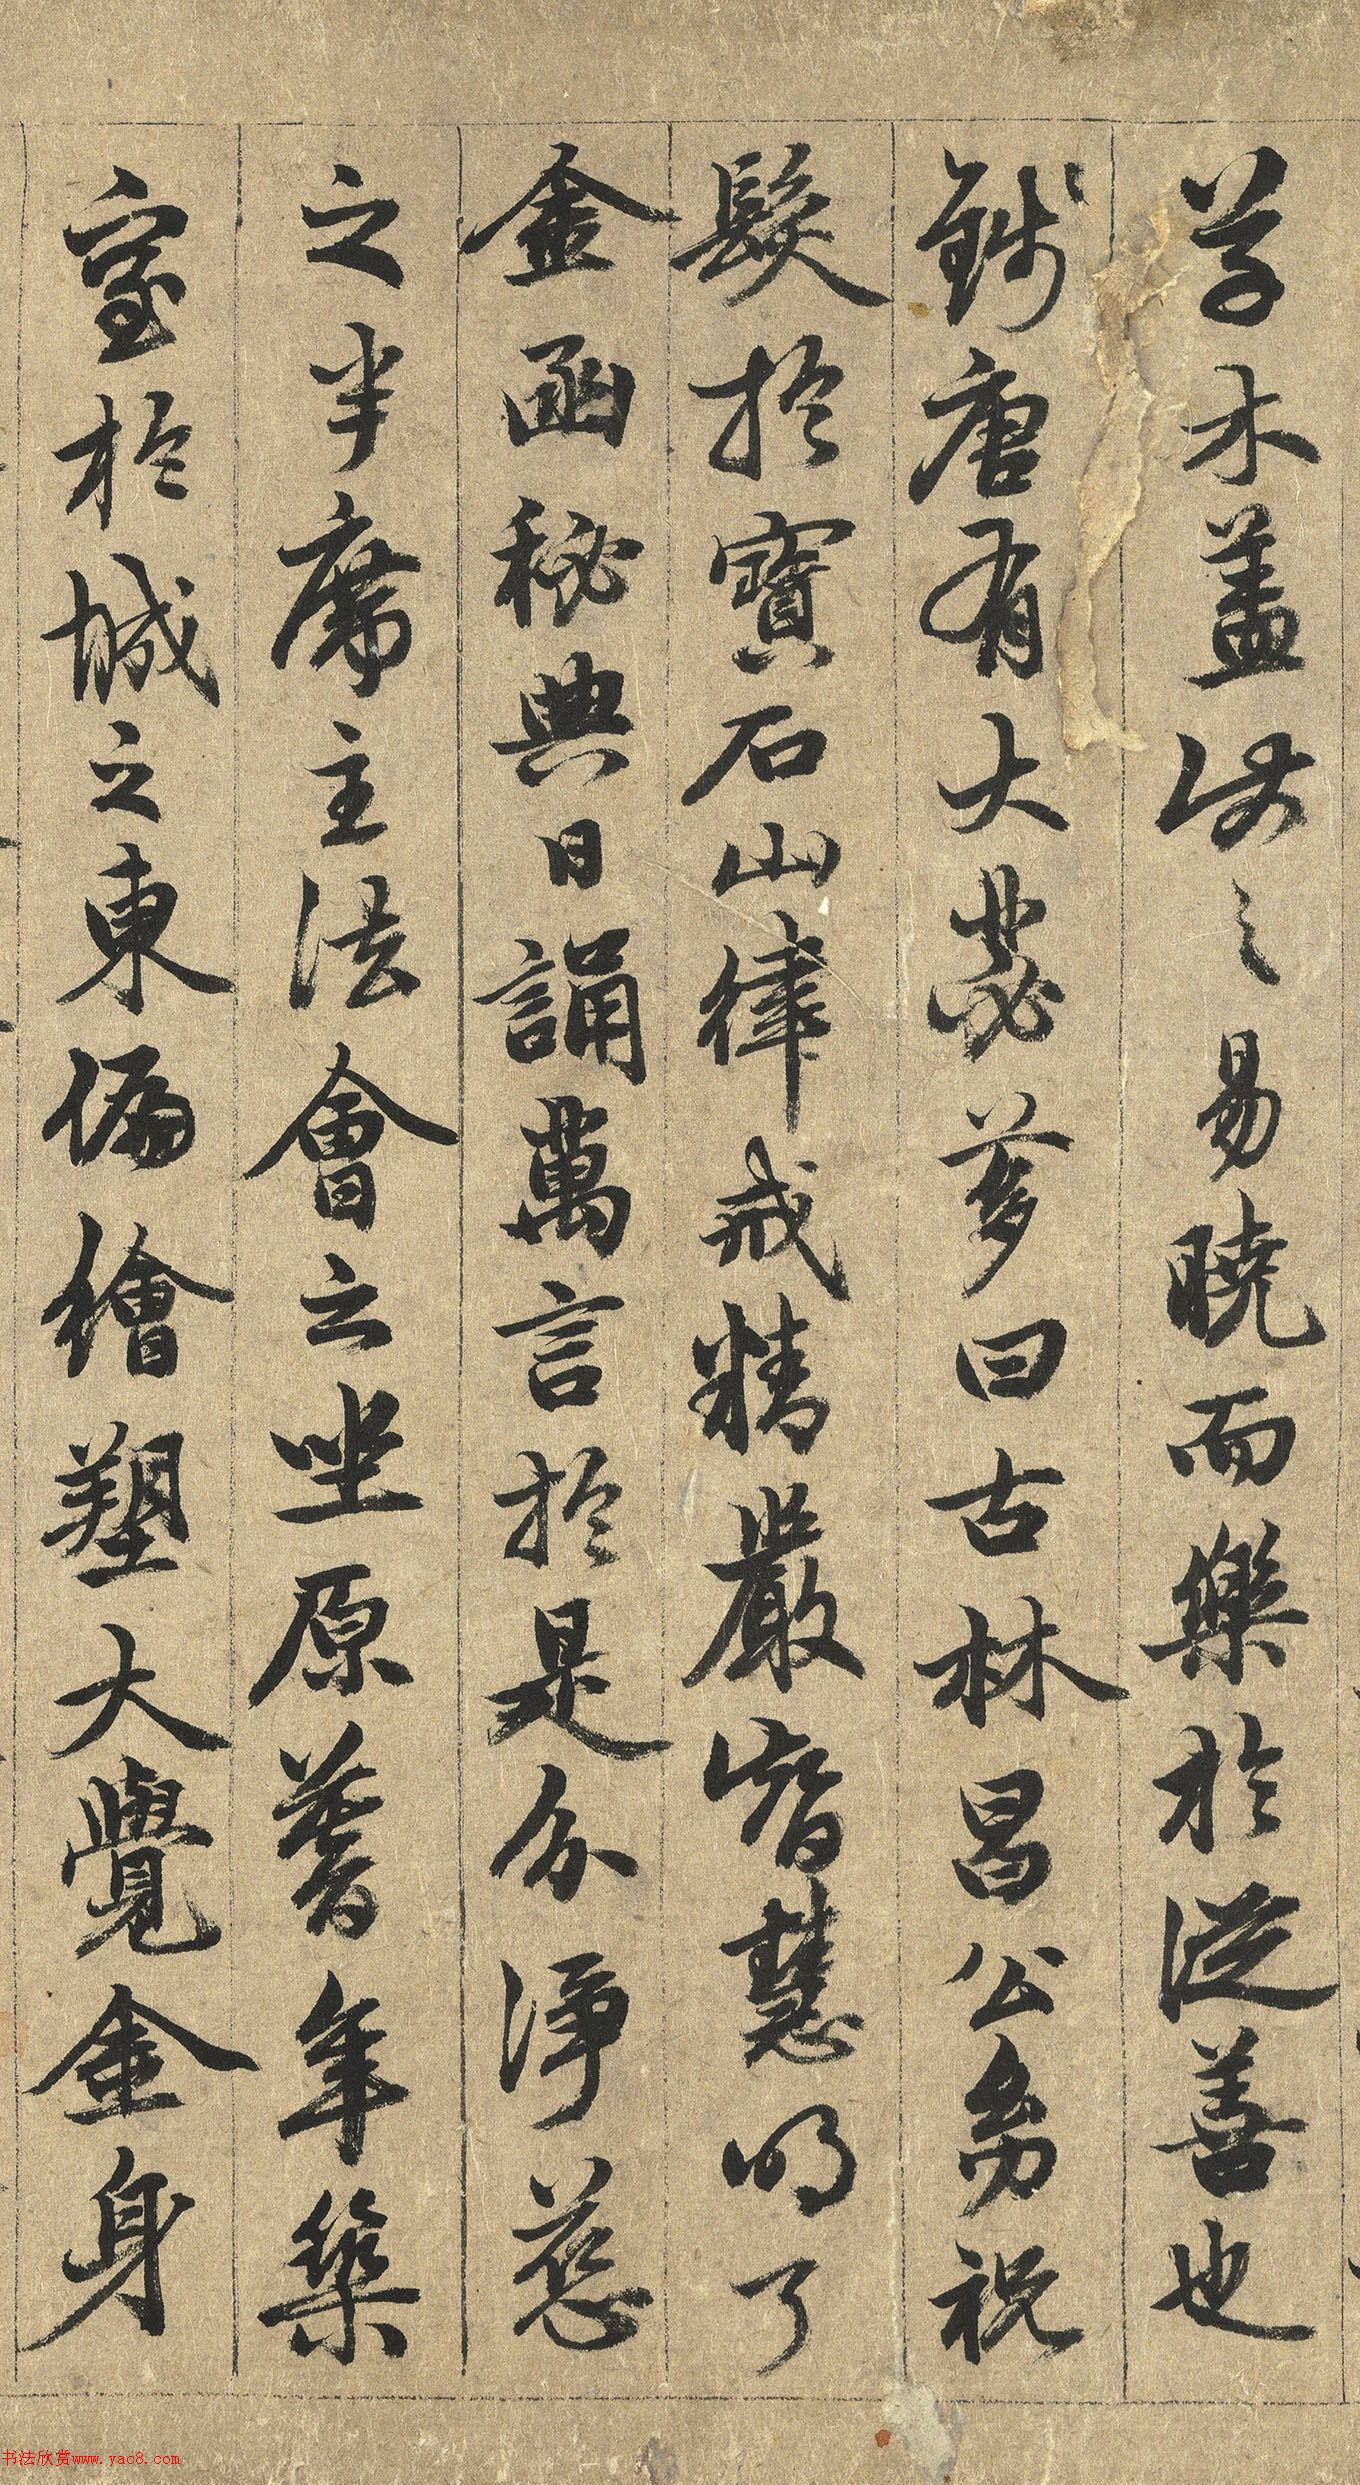 草木蓋化之易曉而樂於從善也
錢唐有大苾蒭曰古林昌公幼祝
髮於寶石山律戒精嚴智慧明了
金函秘典日誦萬言於是分淨慈
之半席主法會之坐原耆年築
室於城之東偏繪塑大覺金身
书法欣赏www.yac8.com